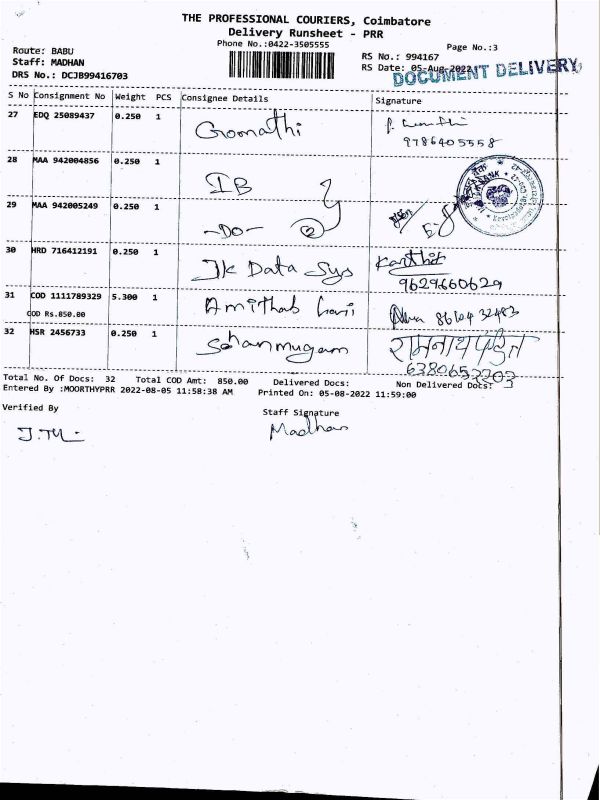 THE PROFESSIONAL COURIERS, Coimbatore
Delivery Runsheet - PRR
Phone No.:0422-3505555
Page No.:3
Route: BABU
Staff: MADHAN
DRS No.: DCJB99416703
RS No.: 994167
RS Date: 05-Aug-2022
DOCUMENT DELIVERY
S No Consignment No Weight PCS Consignee Details Signature
27 EDQ 25089437 0.250 1 Gomathi
9786405558
28 MAA 942004856 0.250 1 IB
29 MAA 942005249 0.250 1 -DO- 2
30 HRD 716412191 0.250 1 Jk Data Sys Karthik
9629660629
31 COD 1111789329 5.300 1 Amithab hari 86104 32483
COD Rs.850.00
32 HSR 2456733 0.250 1 Sohanmugam रामनाथ पंडित
Total No. Of Docs: 32 Total COD Amt: 850.00 Delivered Docs: Non Delivered Docs: 3
Entered By :MOORTHYPRR 2022-08-05 11:58:38 AM Printed On: 05-08-2022 11:59:00
Verified By
Staff Signature
Madhan